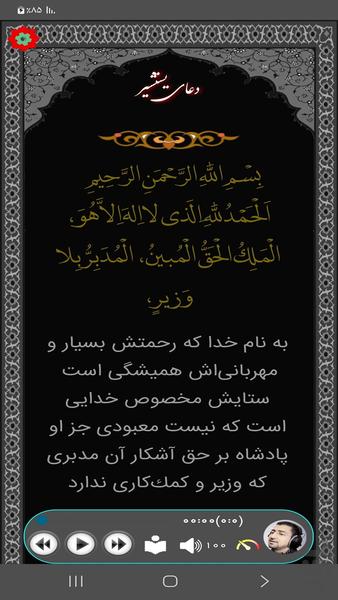 ٪۸۵
دعای یستشیر
بِسْمِ اللهِ الرَّحْمنِ الرَّحیمِ
اَلْحَمْدُ لِلّهِ الَّذی لا اِلهَ اِلاَّ هُوَ،
الْمَلِكُ الْحَقُّ الْمُبینُ، الْمُدَبِّرُ بِلا
وَزیرٍ،
به نام خدا که رحمتش بسیار و
مهربانی‌اش همیشگی است
ستایش مخصوص خدایی
است که نیست معبودی جز او
پادشاه بر حق آشکار آن مدبری
که وزیر و کمك‌کاری ندارد
۰۰:۰۰(۰:۰)
۱۰۰